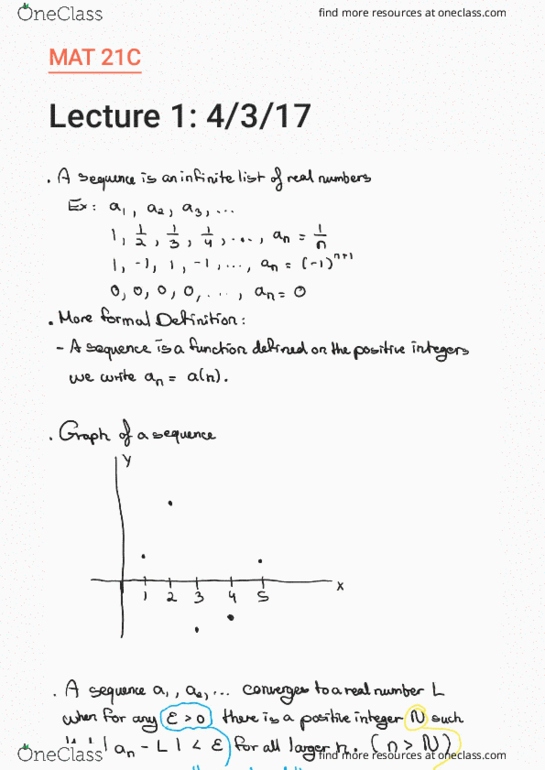 OneClass
find more resources at oneclass.com
MAT 21C
Lecture 1: 4/3/17
. A sequence is an infinite list of real numbers
Ex: a₁, a₂, a₃, ...
1, 1/2, 1/3, 1/4, ..., aₙ = 1/n
1, -1, 1, -1, ..., aₙ = (-1)ⁿ⁺¹
0, 0, 0, 0, ..., aₙ = 0
. More formal Definition:
- A sequence is a function defined on the positive integers
we write aₙ = a(n).
. Graph of a sequence
y
x
1 2 3 4 5
. A sequence a₁, a₂, ... converges to a real number L
when for any ε > 0 there is a positive integer N such
|aₙ - L| < ε for all larger n. (n > N)
OneClass
find more resources at oneclass.com